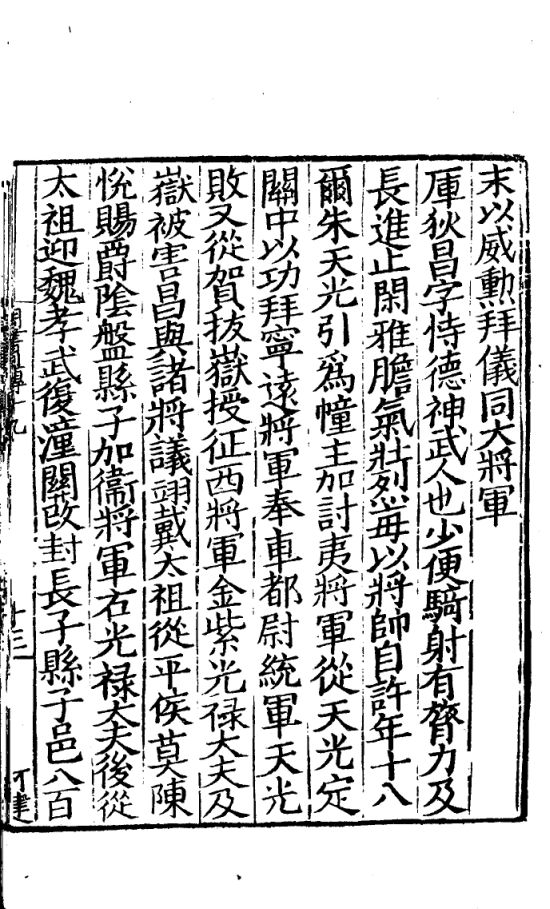 末以威勲拜儀同大將軍
厙狄昌字恃德神武人也少便騎射有膂力及
長進止閑雅膽氣壯烈每以將帥自許年十八
爾朱天光引爲幢主加討夷將軍從天光定
關中以功拜寧遠將軍奉車都尉統軍天光
敗又從賀拔嶽授征西將軍金紫光祿大夫及
嶽被害昌與諸將議翊戴太祖從平侯莫陳
悅賜爵陰盤縣子加衞將軍右光祿大夫後從
太祖迎魏孝武復潼關改封長子縣子邑八百
十三